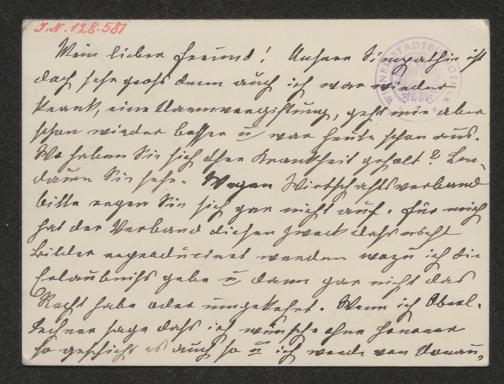 I.N. 128.581
WIENER STADTBIBLIOTHEK
Mein lieber Freund! Unsere Simpathie ist
doch sehr gross denn auch ich war wieder
krank, eine Darmvergiftung, geht mir aber
schon wieder besser u war heute schon aus.
Wo haben Sie sich Ihre Krankheit geholt? Be-
daure Sie sehr. Wegen Wirtschaftsverband
bitte regen Sie sich gar nicht auf. Für mich
hat der Verband diesen Zweck dass
Bilder reproduciert werden wozu ich die
Erlaubniss gebe u dann gar nicht das
Recht habe oder umgekehrt. Wenn ich Oberl-
lechner sage dass ich wünsche ohne Honorar
so geschieht es auch so u ich werde von